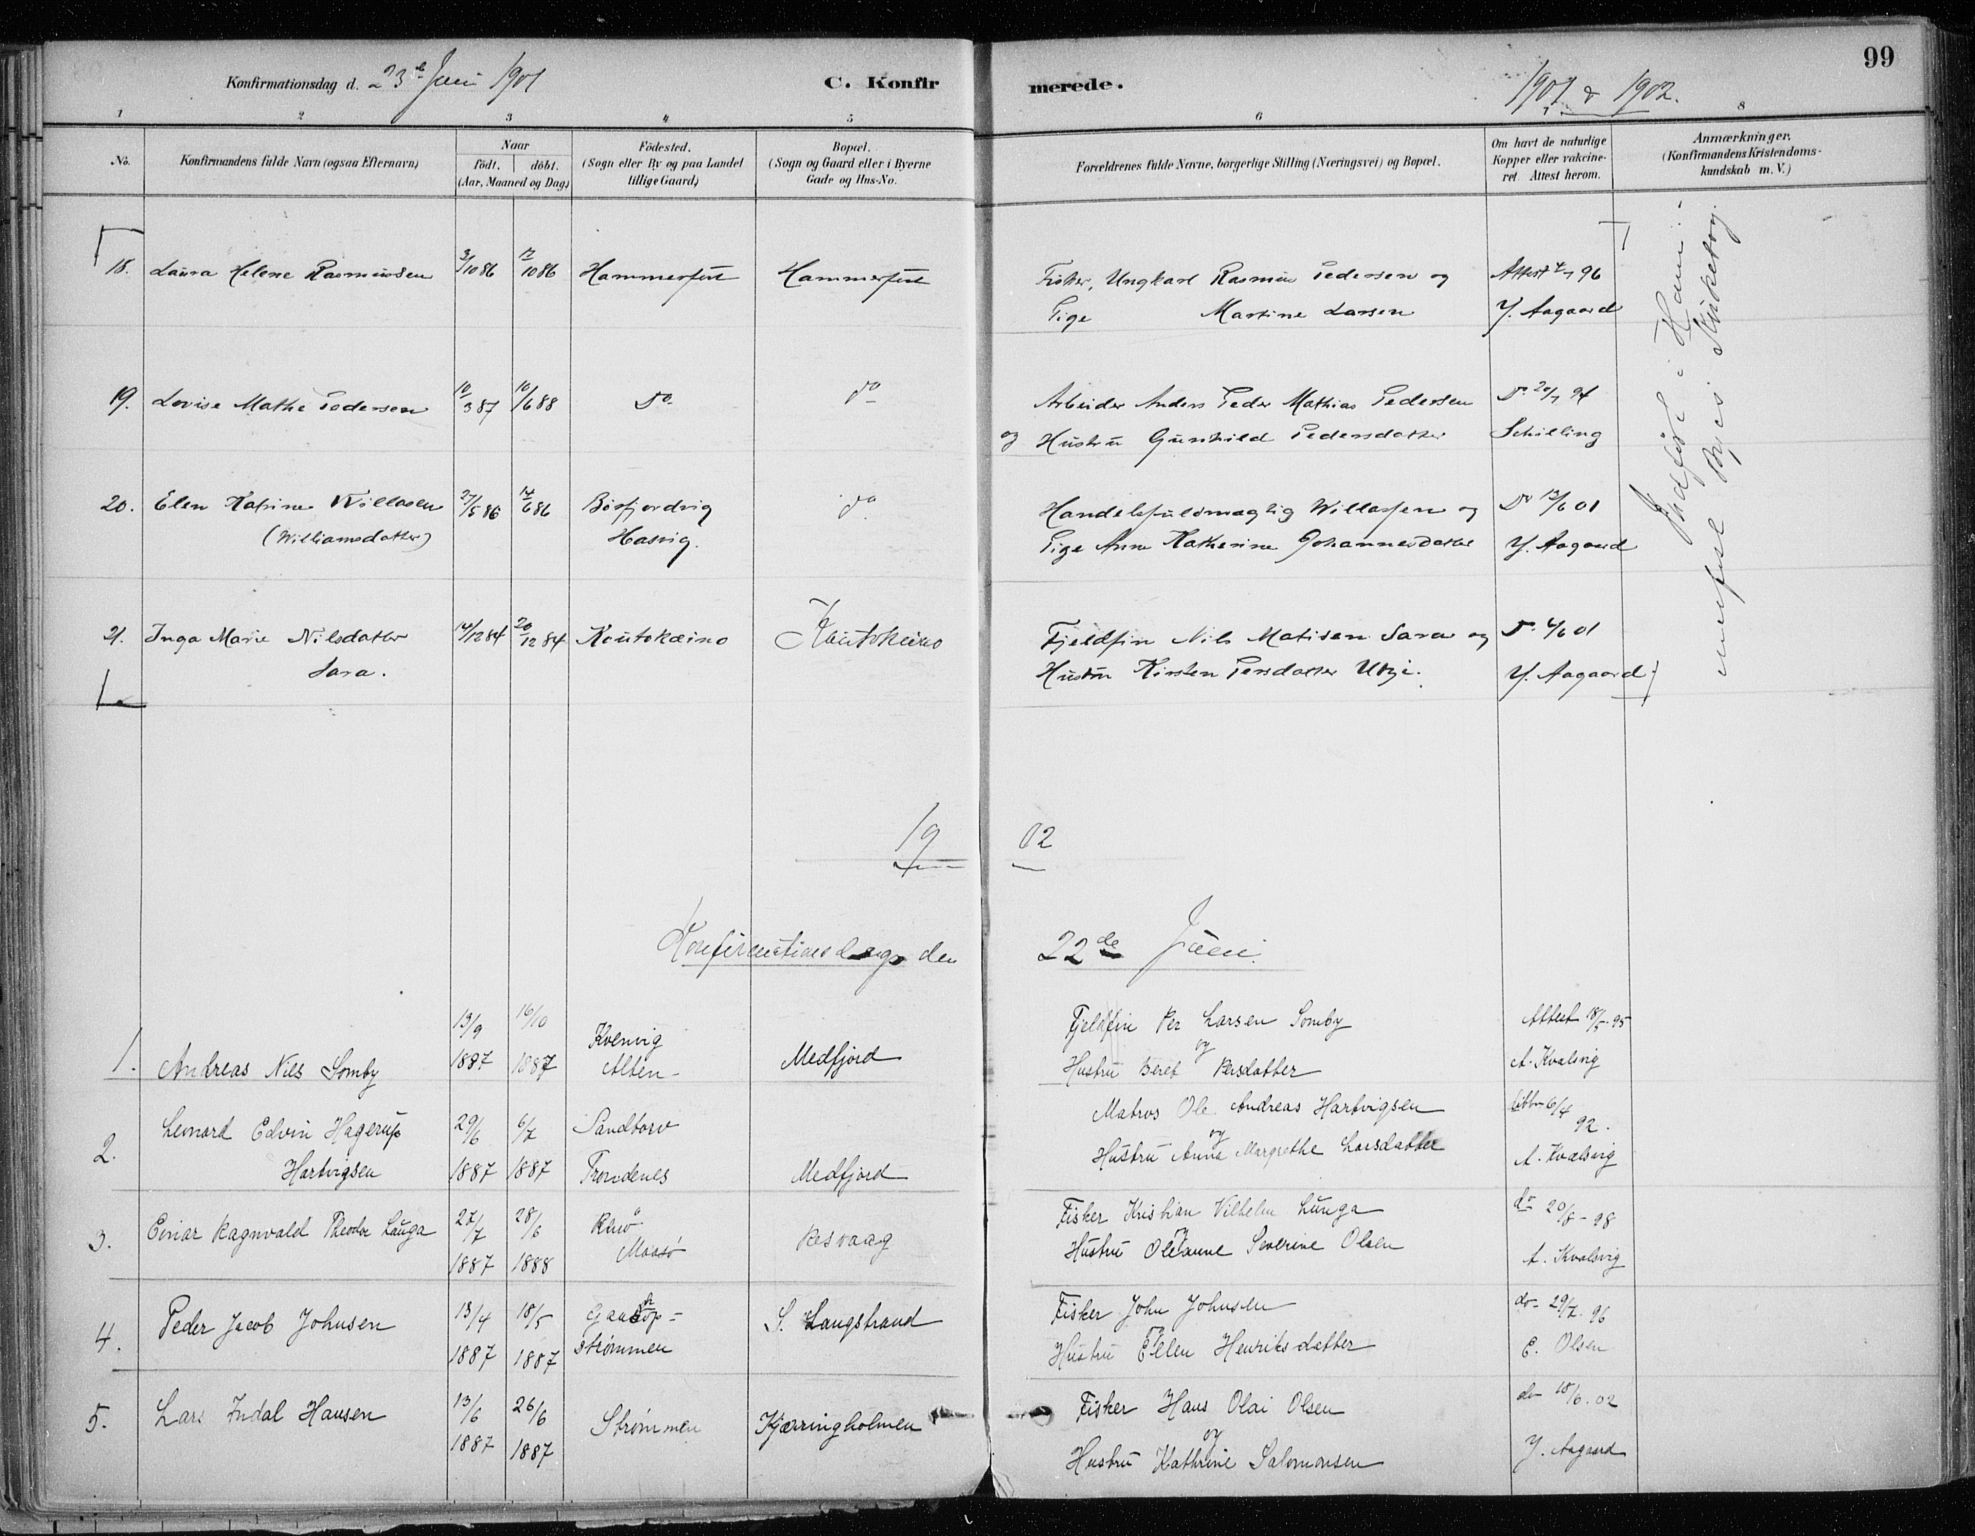 99
Konfirmationsdag d. 23de Juni 1901
C. Konfirmerede.
1901 & 1902.
1 2 3 4 5 6 7 8
No.
Konfirmandens fulde Navn (ogsaa Efternavn)
Naar
født. døbt.
(Aar, Maaned og Dag)
Fødested.
(Sogn eller By og paa Landet
tillige Gaard)
Bopæl.
(Sogn og Gaard eller i Byerne
Gade og Hus-No.
Forældrenes fulde Navne, borgerlige Stilling (Næringsvei) og Bopæl.
Om havt de naturlige
Kopper eller vakcine-
ret. Attest herom.
Anmærkninger.
(Konfirmandens Kristendoms-
kundskab m. V.)
18. Laura Helene Rasmussen 3/10 86 17/10 86 Hammerfest Hammerfest Fisker, Ungkarl Rasmus Pedersen og Attest 96
Pige Martine Larsen Y. Aagaard
19. Lovise Mathe Pedersen 10/3 87 10/6 88 Do do Arbeider Anders Peder Mathias Pedersen Do 20/7 94
og Hustru Gunhild Pedersdatter Schilling
20. Elen Katrine Willasen 27/5 86 17/6 86 Børfjordvig do Handelsfuldmægtig Willassen og Do 13/6 01
(Williamsdatter) Hasvig. Pige Anne Katherine Johannesdatter Y. Aagaard
21. Inga Marie Nilsdatter 14/12 84 20/12 84 Koutokæino Koutokeino Fjeldfin Nils Matisen Sara og Do 4/6 01
Sara. Hustru Kirsten Persdatter Utsi. Y. Aagaard
Indført i Ham-
merfest Bys Kirkebog.
1902
Konfirmationsdag den 22de Juni.
1. Andreas Nils Somby 13/9 1887 16/10 1887 Kvenvig Alten Medfjord Fjeldfin Per Larsen Somby Attest 18/5-95
og
Hustru Beret Persdatter A. Kvalsvig
2. Leonard Edvin Hagerup 29/6 6/7 Sandtorv Matros Ole Andreas Hartvigsen 6/4 92.
og
Hartvigsen 1887 1887 Trondenes Medfjord Hustru Anna Margrethe Larsdatter A. Kvalsvig
3. Einar Ragnvald Theodor Lauga 27/7 1887 28/6 1888 Maasø Kesvaag Fisker Kristian Vilhelm Lunga do 20/8-98
og
Hustru Oleanne Severine Olsen A. Kvalsvig
4. Peder Jacob Johnsen 13/4 1887 18/5 1887 strømmen S. Langstrand Fisker John Johnsen do 29/7. 96
og
Hustru Ellen Henriksdatter E. Olsen
5. Lars Indal Hansen 13/6 1887 26/6 1887 Strømmen Kjærringholmen Fisker Hans Olai Olsen do 18/6. 02
og
Hustru Kathrine Salomonsen Y. Aagaard